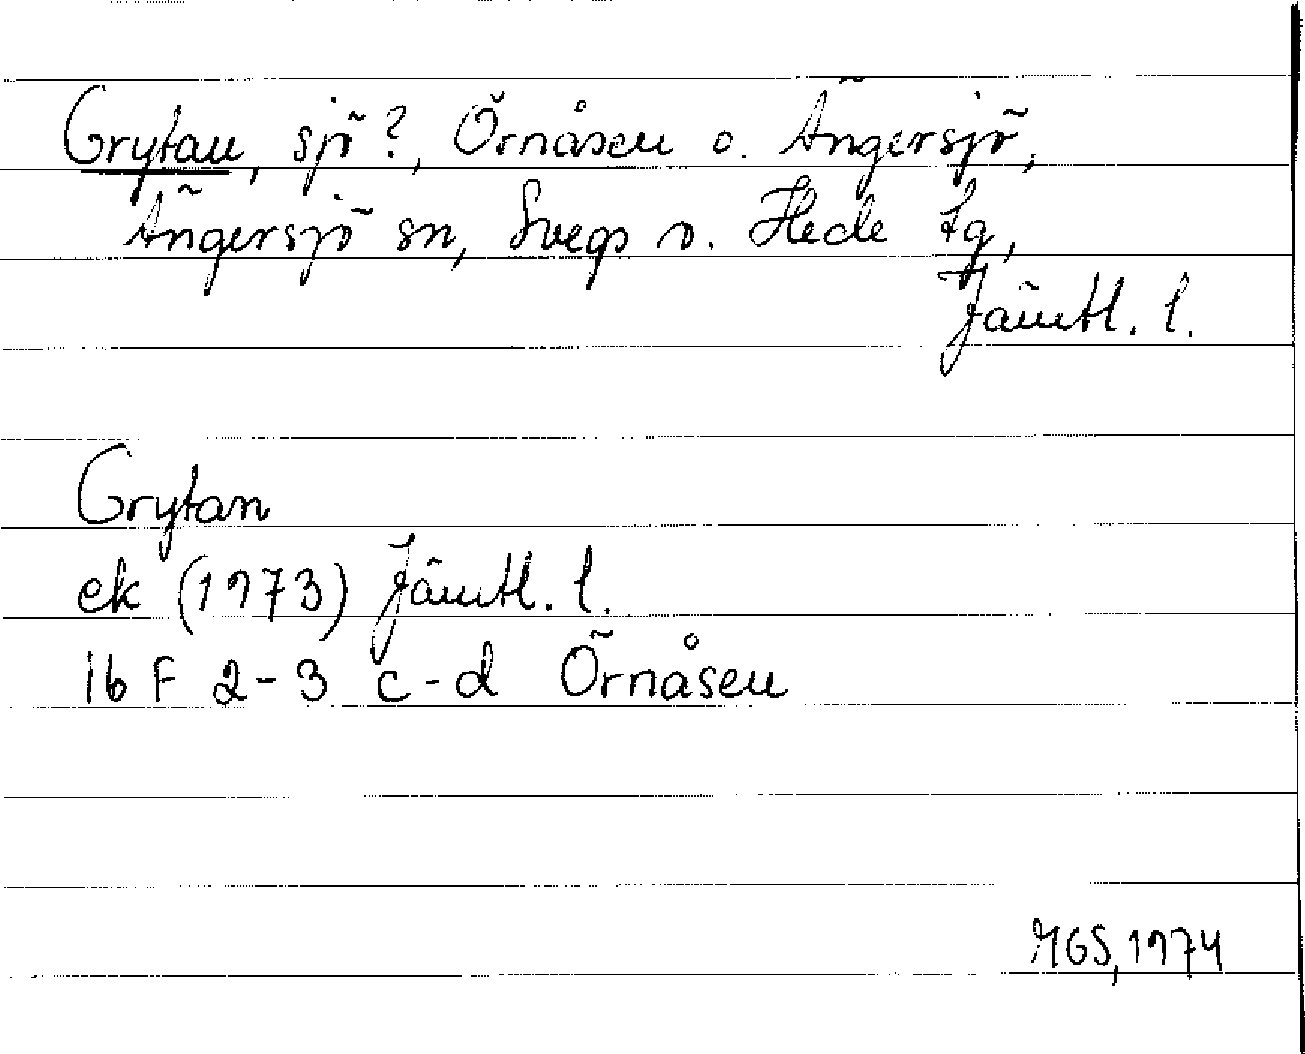 Grytan, sjö?, Örnåsen o. Ängersjö,
Ängersjö sn, Svegs o. Hede tg,
Jämtl. l.
Grytan
ek (1973) Jämtl. l.
16 F 2-3 c-d Örnåsen
MGS, 1974